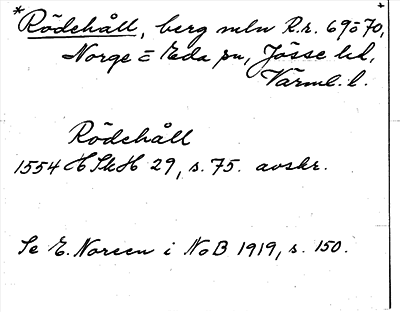 *Rödehåll, berg mln R.r. 69 o 70,
Norge = Eda sn, Jösse hd,
Värml. l.
Rödehåll
1554 HSkH 29, s. 75. avskr.
Se E. Noreen i NoB 1919, s. 150.